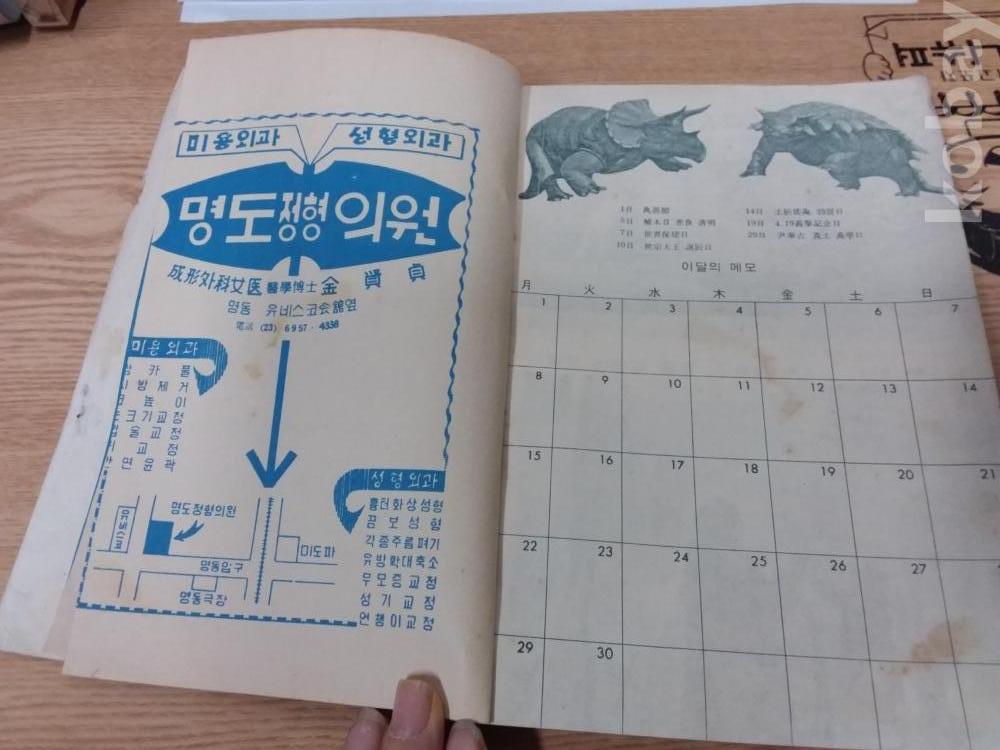 미용외과 성형외과
명도정형의원
成形外科女医 醫學博士 金 賢 貞
명동 유네스코会舘옆
電話 (23) 6957·4338
미용외과
쌍카풀
높이
크기교정
술교정
교정
면윤곽
성형외과
흉터화상성형
곰보성형
각종주름펴기
유방확대축소
무모증교정
성기교정
언챙이교정
명도정형의원
유네스코
미도파
명동입구
명동극장
1日 萬愚節
5日 植木日 寒食 清明
7日 世界保健日
10日 世宗大王 誕辰日
14日 土
19日 4.19義擧記念日
29日 尹奉吉 義士 義擧日
이달의 메모
月 火 水 木 金 土 日
1 2 3 4 5 6 7
8 9 10 11 12 13 14
15 16 17 18 19 20 21
22 23 24 25 26 27
29 30